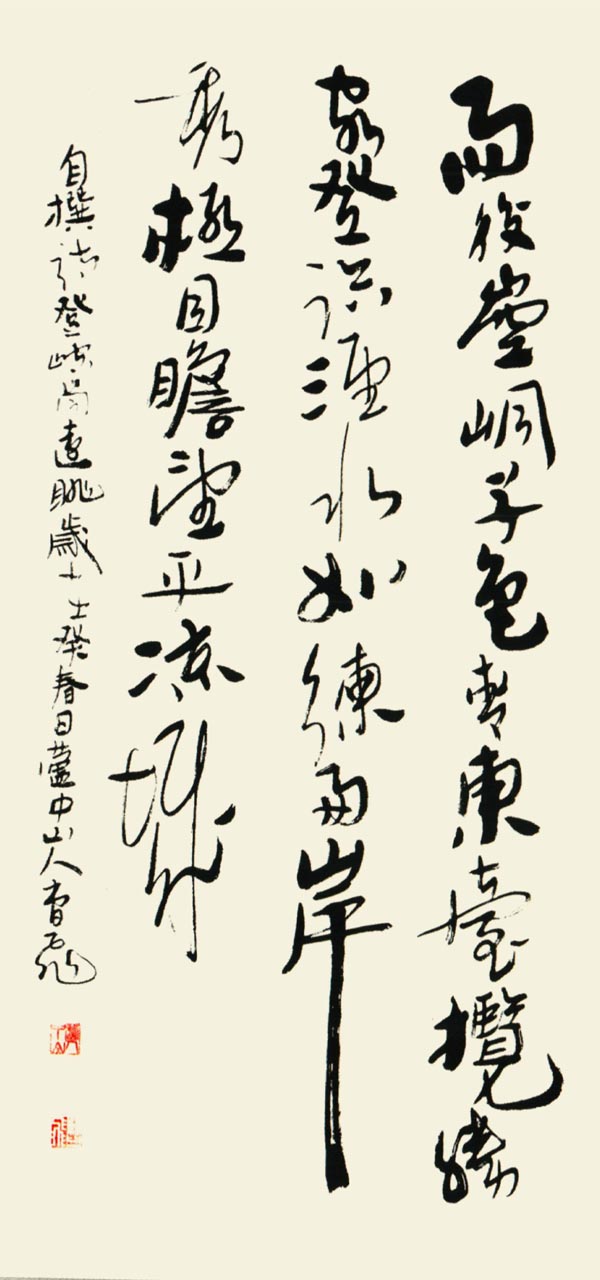 雨後崆峒草色青東臺攬勝
最登臨涇水如練兩岸
秀極目瞻望平涼城
自撰詩登崆峒遠眺歲癸春日蘆中山人曹